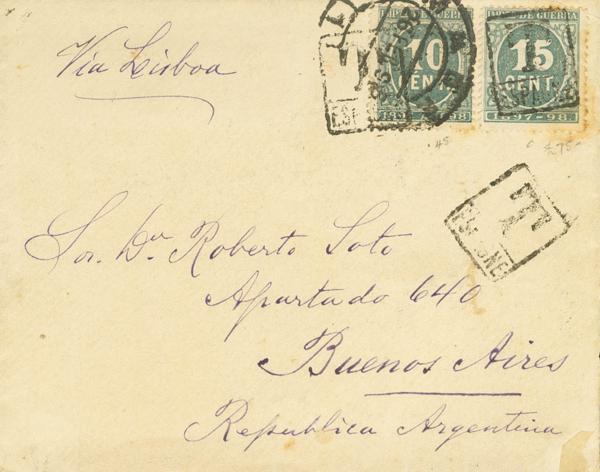 Via Lisboa
IMPTO DE GUERRA
10
CENT.
1897-98
IMPTO DE GUERRA
15
CENT.
1897-98
Sor. Dn. Roberto Soto
Apartado 640
Buenos Aires
Republica Argentina